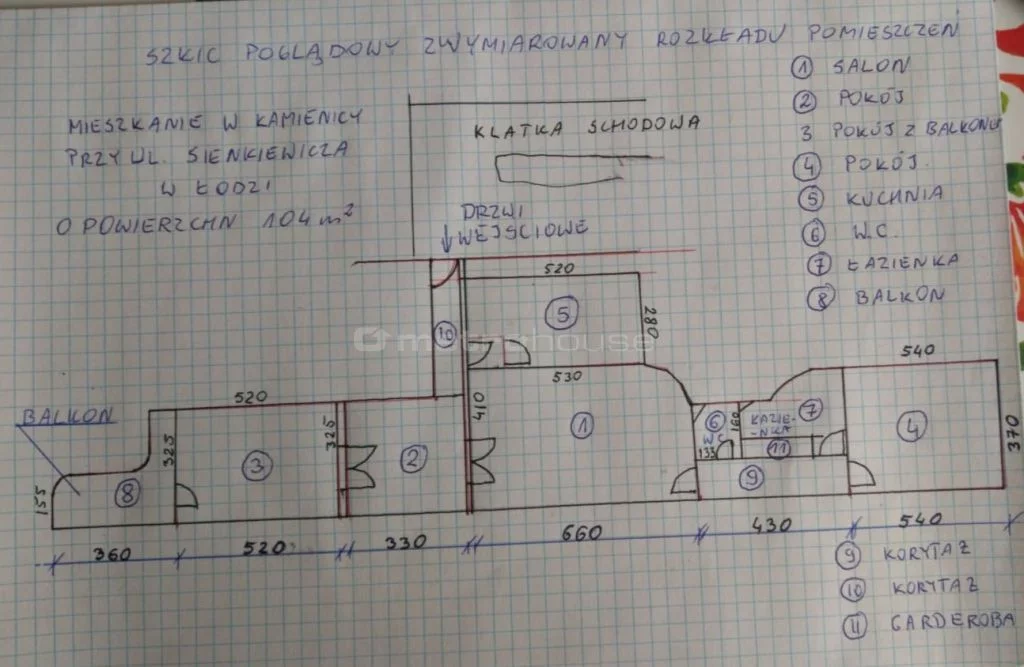 SZKIC POGLĄDOWY ZWYMIAROWANY ROZKŁADU POMIESZCZEŃ
MIESZKANIE W KAMIENICY
PRZY UL. SIENKIEWICZA
W ŁODZI
O POWIERZCHN 104 m²
KLATKA SCHODOWA
DRZWI
WEJŚCIOWE
1 SALON
2 POKÓJ
3 POKÓJ Z BALKONEM
4 POKÓJ.
5 KUCHNIA
6 W.C.
7 ŁAZIENKA
8 BALKON
520
5
280
10
metrohouse
530
540
BALKON
520
325
325
410
1
6
W.C.
160
133
ŁAZIE-
-NKA
7
11
4
370
3
2
9
8
155
360
520
330
660
430
540
9 KORYTAŻ
10 KORYTAŻ
11 GARDEROBA